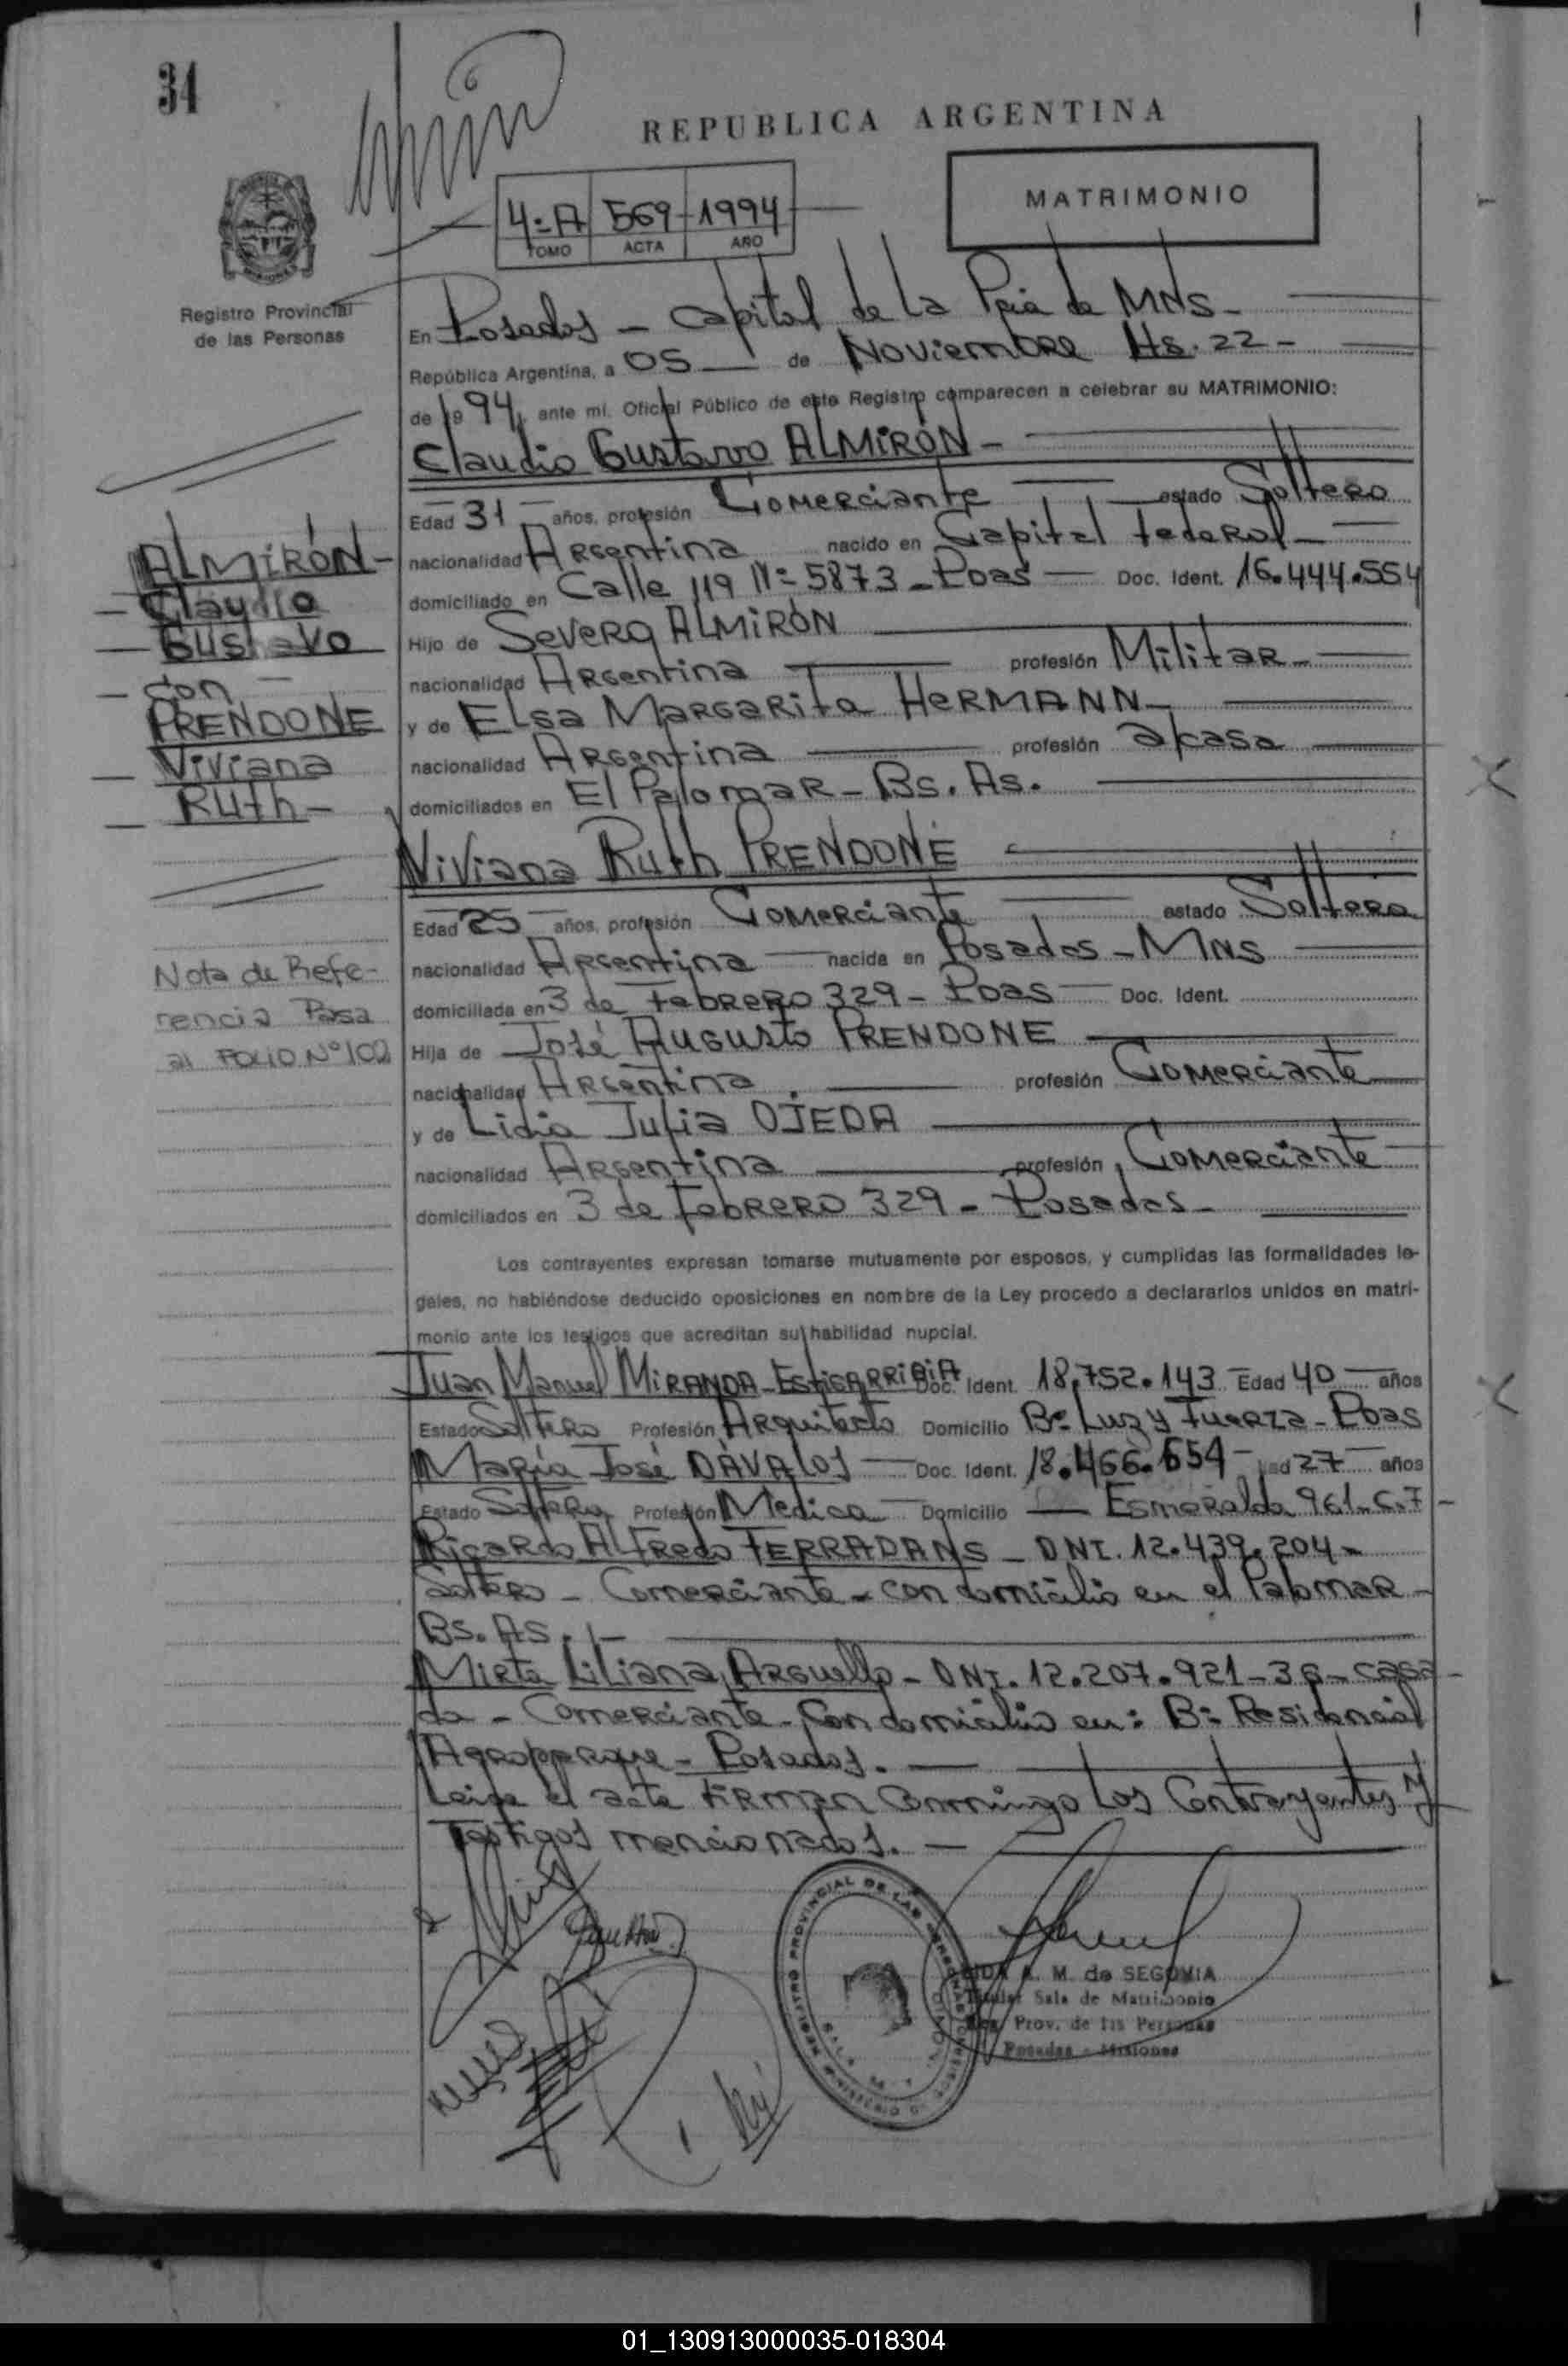 34
REPUBLICA ARGENTINA
MATRIMONIO
4=A 569 1994
TOMO ACTA AÑO
Registro Provincial
de las Personas
En Posadas - Capital de la Pcia de MNS-
República Argentina, a 05 de Noviembre Hs. 22-
de 1994 ante mí. Oficial Público de este Registro comparecen a celebrar su MATRIMONIO:
Claudio Gustavo ALMIRÓN-
Edad 31 años, profesión Comerciante estado Soltero
nacionalidad Argentina nacido en Capital Federal-
domiciliado en Calle 119 N= 5873-Poas Doc. Ident. 16.444.554
Hijo de Severo ALMIRÓN
nacionalidad Argentina profesión Militar-
y de Elsa Margarita HERMANN-
nacionalidad Argentina profesión a/casa
domiciliados en El Palomar-Bs. As.
Viviana Ruth PRENDONE
Edad 25 años, profesión Comerciante estado Soltera
nacionalidad Argentina nacida en Posadas-MNS
domiciliada en 3 de Febrero 329-Poas Doc. Ident.
Hija de José Augusto PRENDONE
nacionalidad Argentina profesión Comerciante
y de Lidia Julia OJEDA
nacionalidad Argentina profesión Comerciante
domiciliados en 3 de Febrero 329-Posadas-
Los contrayentes expresan tomarse mutuamente por esposos, y cumplidas las formalidades le-
gales, no habiéndose deducido oposiciones en nombre de la Ley procedo a declararlos unidos en matri-
monio ante los testigos que acreditan su habilidad nupcial.
Juan Manuel MIRANDA-ESTIGARRIBIA Doc. Ident. 18.752.143 Edad 40 años
Estado Soltero Profesión Arquitecto Domicilio B= Luz y Fuerza-Poas
María José DÁVALOS Doc. Ident. 18.466.654 Edad 27 años
Estado Soltera Profesión Medica Domicilio Esmeralda 961-6.7-
Ricardo Alfredo TERRADANS-DNI. 12.439.204-
Soltero-Comerciante-con domicilio en el Palomar-
BS. AS.
Mirta Liliana Arguello-DNI. 12.207.921-36-casa-
da-Comerciante-Con domicilio en: B= Residencial
Agroparque-Posadas.
Leida el acta firman conmigo los Contrayentes y
Testigos mencionados.
ALMIRÓN-
Claudio
Gustavo
con
PRENDONE
Viviana
Ruth-
Nota de Refe-
rencia Pasa
al FOLIO Nº 102
REGISTRO PROVINCIAL DE LAS PERSONAS
A. M. de SEGOVIA
Titular Sala de Matrimonio
Reg. Prov. de las Personas
Posadas - Misiones
01_130913000035-018304